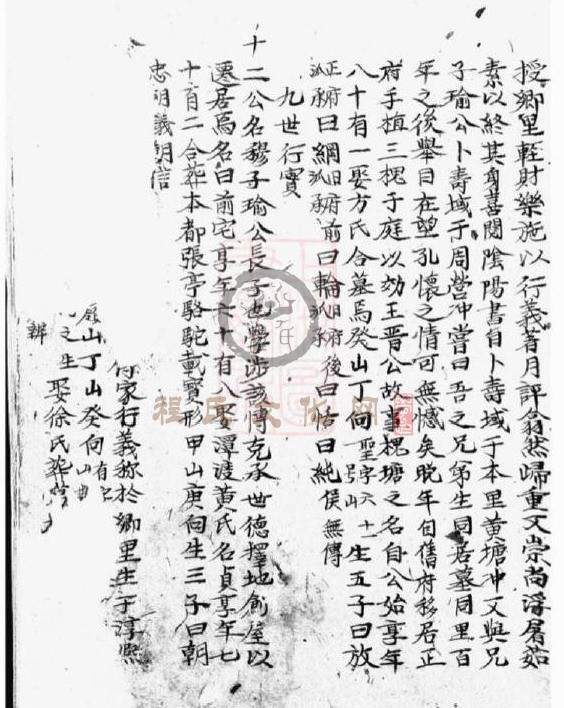 授鄉里輕財樂施以行義著月評翕然歸重又崇尚浮屠茹
素以終其身喜閱陰陽書自卜壽域于本里黄塘冲又與兄
子瑜公卜壽域于周營冲嘗曰吾之兄弟生同居墓同里百
年之後舉目在望孔懷之情可無憾矣晚年自舊府移居正
府手植三槐于庭以効王晋公故事槐塘之名自公始享年
八十有一娶方氏合墓焉癸山丁向聖字六十一号山生五子曰放
正府派曰綱旧府派前曰輪旧府派後曰恬曰純俟無傳
九世行實
十二公名穆子瑜公長子也學涉該博克承世德擇地創屋以
遷居焉名曰前宅享年六十有八娶潭渡黄氏名貞享年七
十有二合葬本都張亭駱駝載寳形甲山庚向生三子曰朝
忠明義朝信
家行義称於鄉里生于淳熙
山丁山癸向
之生娶徐氏葬
程氏文化网